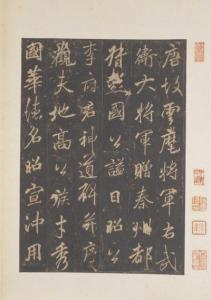 唐故雲麾將軍右武
衛大將軍贈秦州都
督彭國公謚曰昭公
李府君神道碑并序
觀夫地高公族才秀
國華德名昭宣沖用